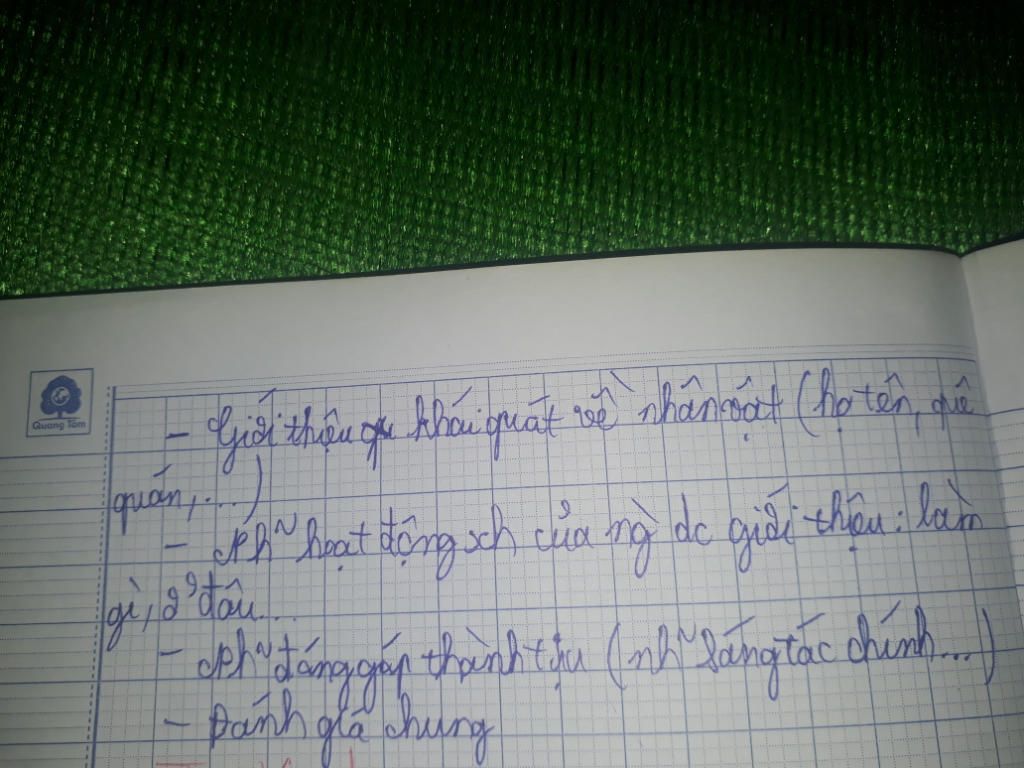 Quang Tâm
- Giới thiệu khái quát về nhân vật (họ tên, quê
quán,...)
- Nh~ hoạt động xh của ng` dc giới thiệu: làm
gì, ở đâu...
- Nh~ đóng góp thành tựu (nh~ sáng tác chính...)
- Đánh giá chung